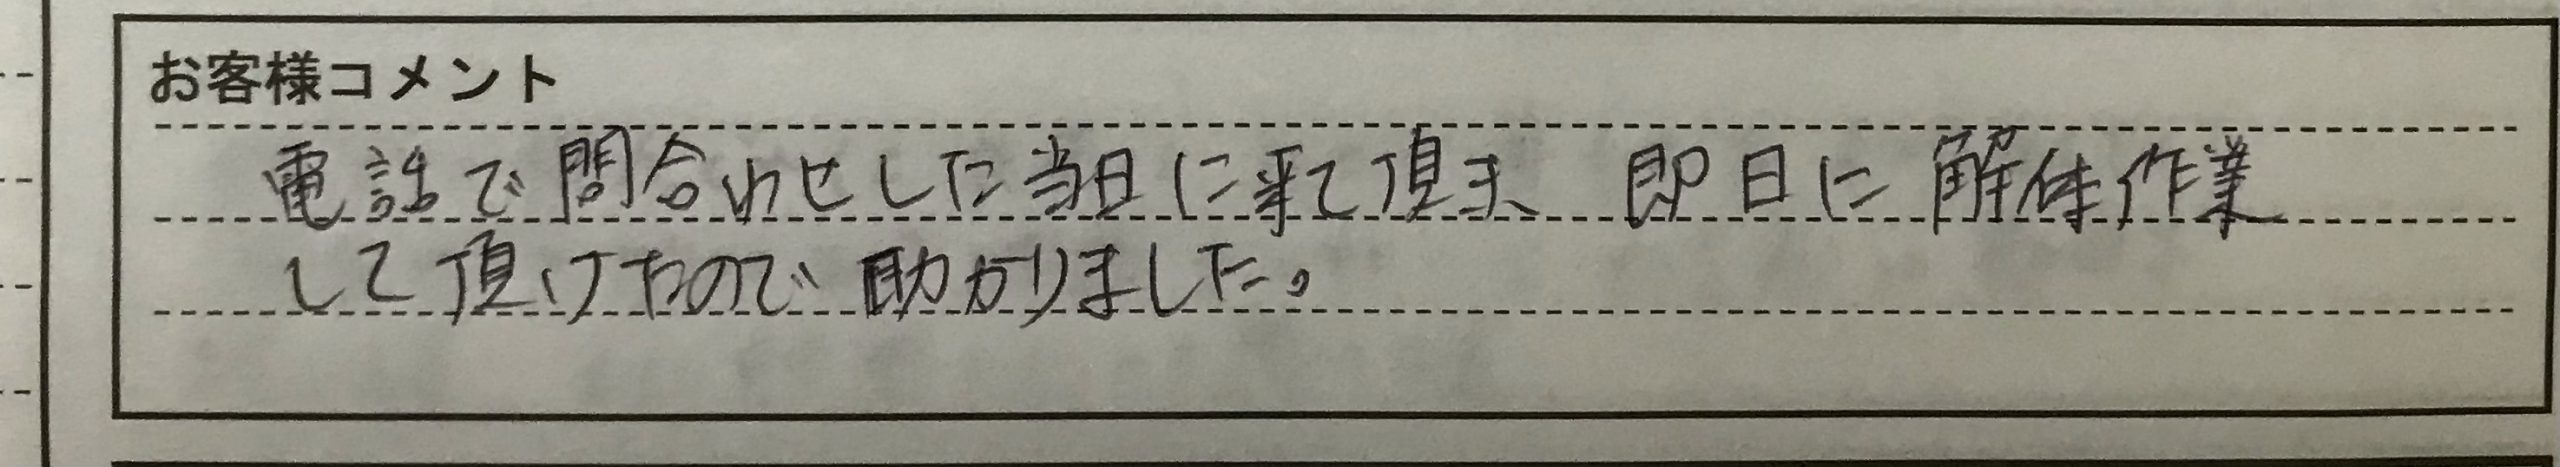 お客様コメント
電話で問合わせした当日に来て頂き、即日に解体作業
して頂けたので助かりました。